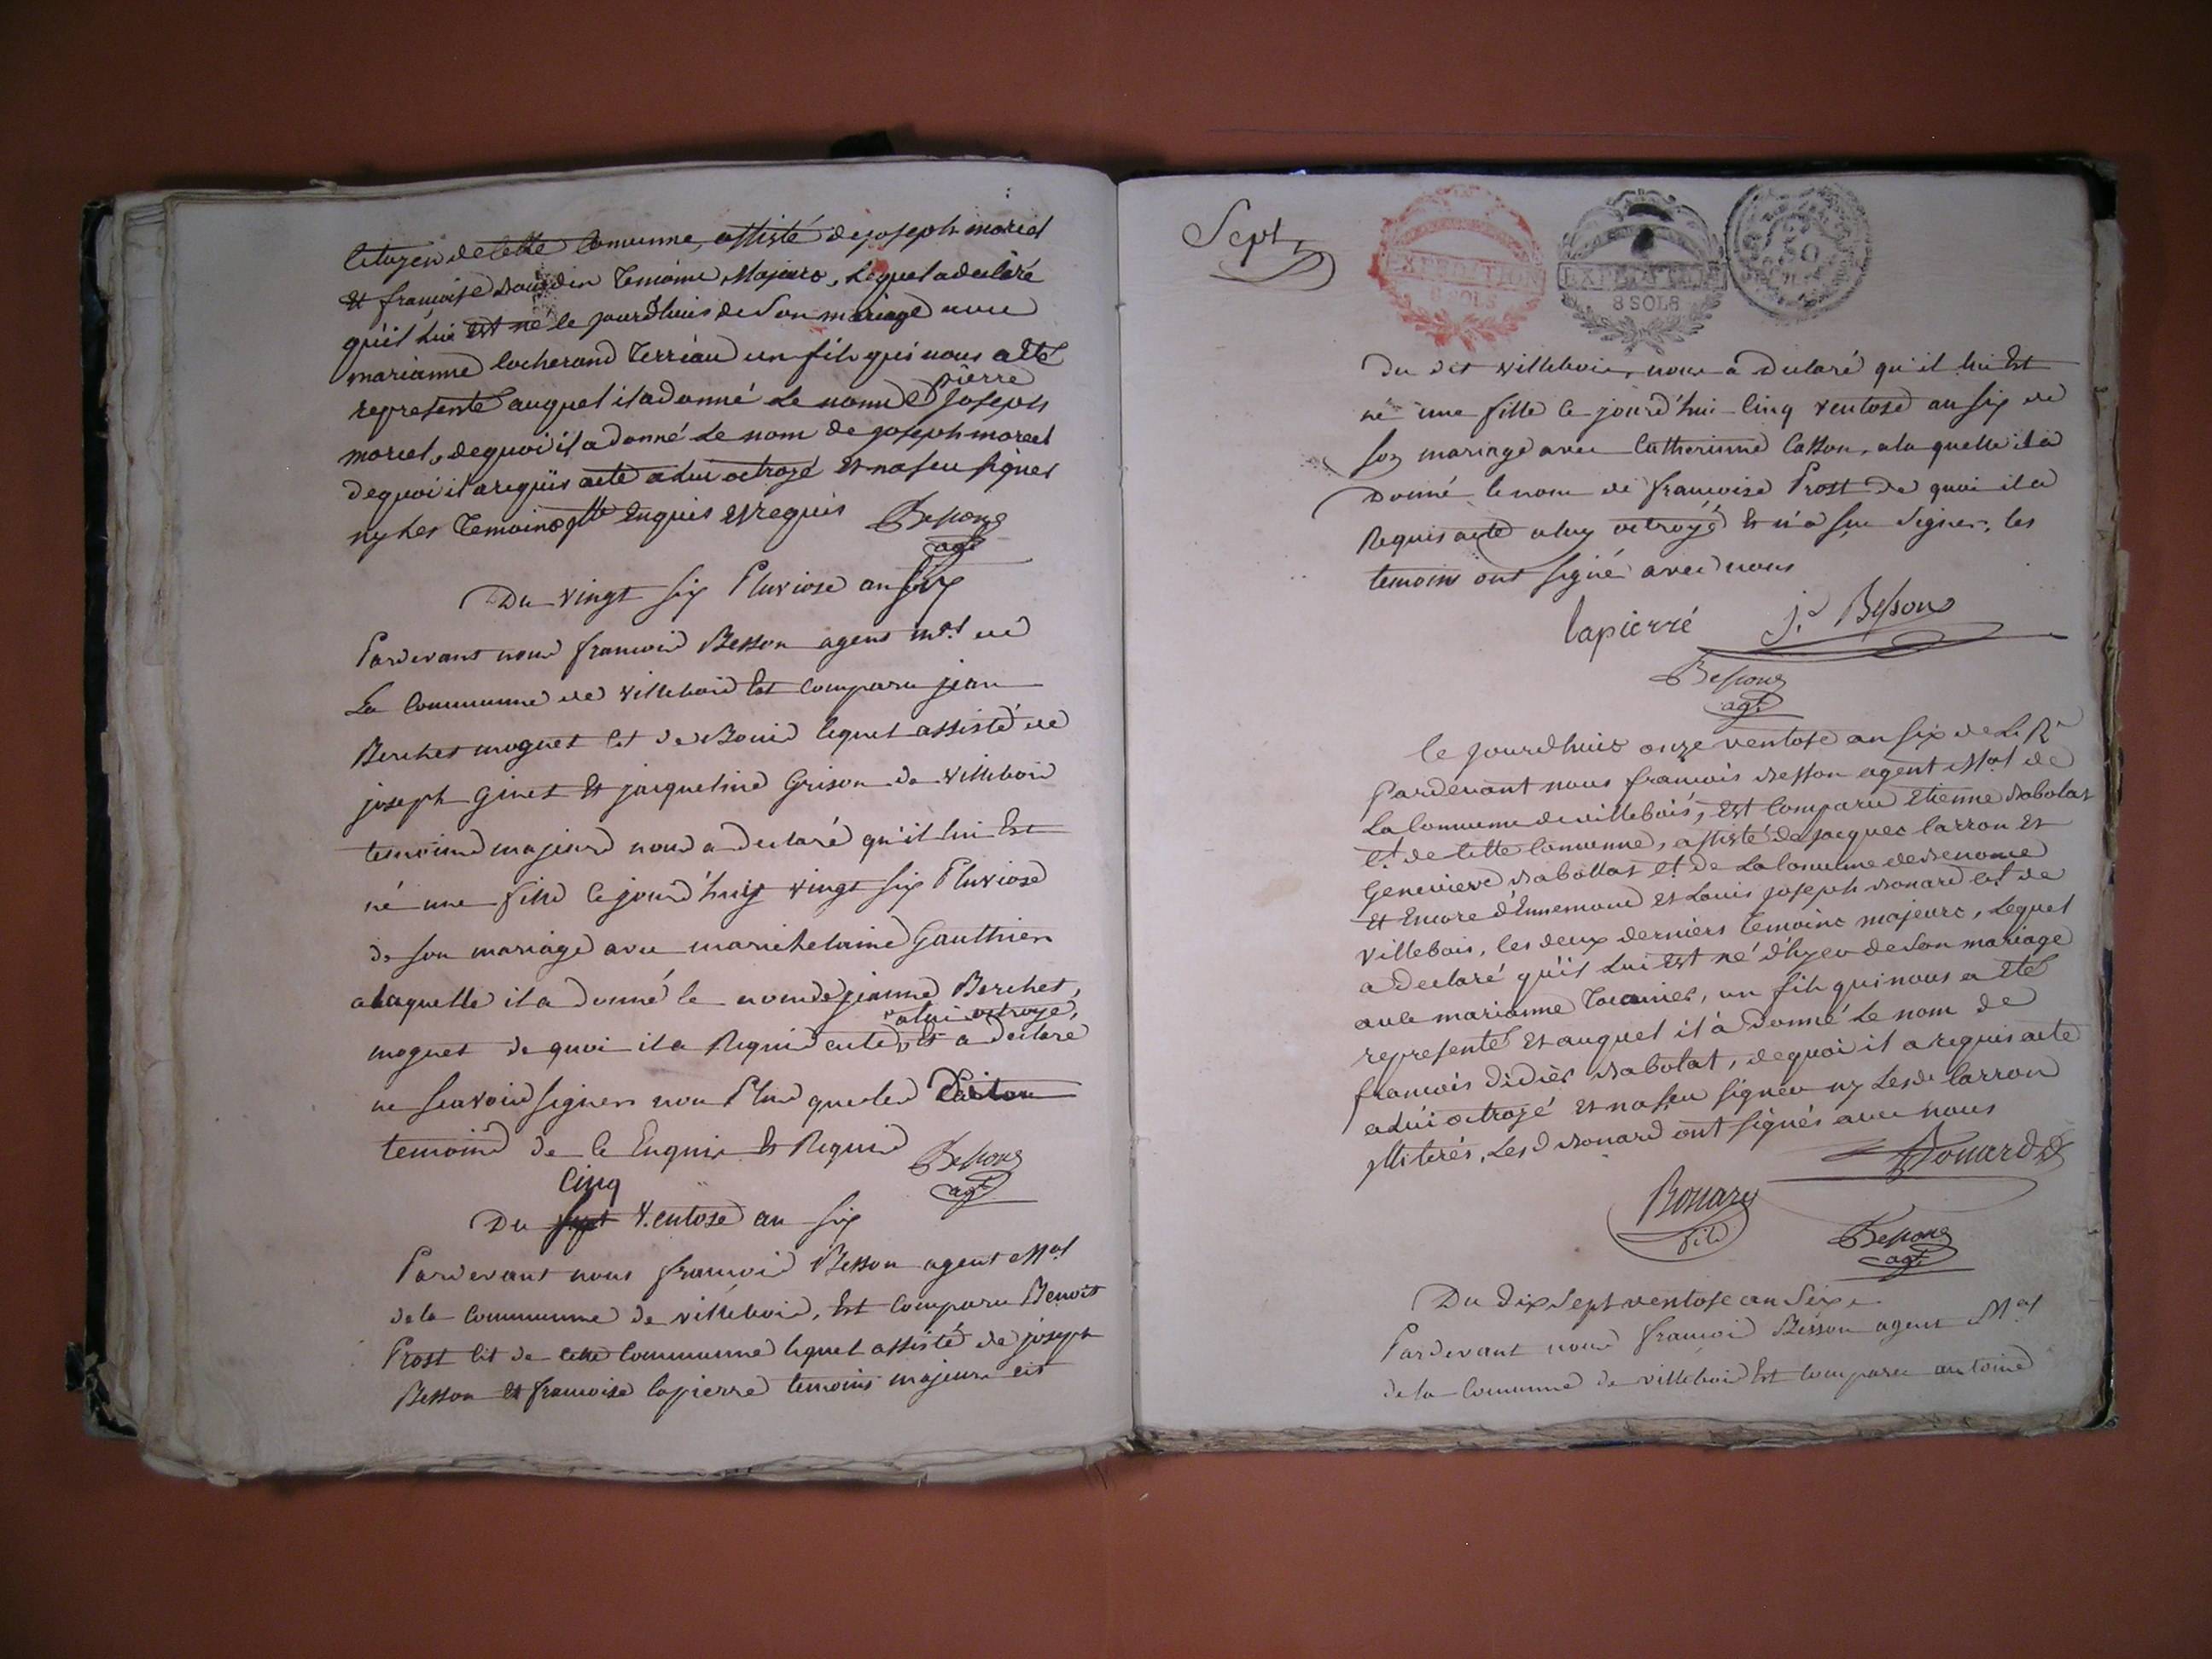 Citoyen de cette Commune, assisté de joseph morel
Et françoise Temoins Majeurs, Lequel a declaré
qu'il Lui est né le jourd'huis de Son mariage avec
marianne locherand Terriau un fils qui nous a Eté
represente auquel il a donné Le nom de pierre Joseph
morel, de quoi il a donné Le nom de joseph morel
de quoi il a requis acte a Lui octroyé Et na seu signer
ny Les Temoins Enquis Et requis Besson
agt
Du vingt six Pluviose an six
Pardevant nous francois Besson agent mal de
La Commune de villebois Est Comparu jean
Berchet moguet Cit de Bouis lequel assisté de
joseph Ginet Et jacqueline Grison de villebois
temoins majeurs nous a declaré qu'il lui Est
né une fille le jourd'huy vingt six Pluviose
de son mariage avec marie helaine Gauthier
a laquelle il a donné le nom de jeanne Berchet,
moguet de quoi il a Requis acte a lui octroyé, Et a declaré
ne scavoir signer non Plus que les
temoins de ce Enquis Et Requis Besson
agt
Cinq
Du sept Ventose an six
Pardevant nous francois Besson agent Mal
de la Commune de villebois, Est Comparu Benoit
Prost Cit de cette Commune lequel assisté de joseph
Besson Et francoise lapierre temoins majeurs cit
Sept
EXPEDITION
8 SOLS
EXPEDITION
8 SOLS
50
Du dit villebois, nous a Declaré qu'il lui Est
né une fille le jourd'hui Cinq ventose an six de
son mariage avec Catherinne Casson, a la quelle il a
Donné le nom de francoise Prost de quoi il a
Requis acte a luy octroyé Et n'a sçu signer, les
temoins ont signé avec nous
lapierré J. Besson
Besson
agt
le jourdhuis onze ventose an six de L. R.
Pardevant nous francois Besson agent Mal de
La Commune de villebois, Est Comparu Etienne Babolat
Ct. de Cette Commune, assisté de jacques Carron Et
Genevieve Babollat Ct. de La Commune de Benonce
Et Encore d'Ennemond Et Louis joseph Bonard Ct. de
villebois, les deux derniers Temoins majeurs, Lequel
a declaré qu'il Lui Est né d'hyer de Son mariage
avec marianne, un fils qui nous a Eté
represente Et auquel il à donné Le nom de
francois didier Babolat, de quoi il a requis acte
a lui octroyé Et na seu signer ny Les dt Carron
illiterés, Les d Bonard ont signés avec nous
Bonard
Bonard
fils
Besson
agt
Du dix Sept ventose an Six
Pardevant nous francois Besson agent Mal
de la Commune de villebois Est Comparu antoine